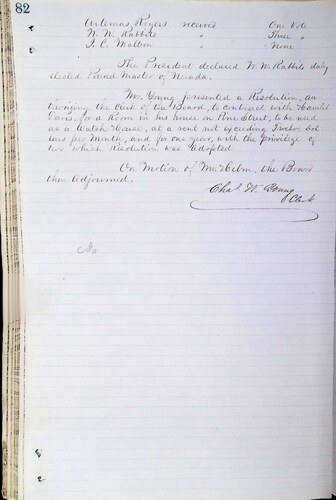 82
Artemas Rogers received One Vote
W. N. Rabbits " Three "
J. C. Walton " Nine "
The President declared W. N. Rabbits duly
elected Pound Master of Nevada.
Mr. Young presented a Resolution, au
thorizing the Clerk of the Board, to contract with Hamlet
Davis, for a Room in his house on Pine Street, to be used
as a Watch House, at a rent not exceeding Twelve Dol
lars per Month, and for one year, with the privilege of
two, which Resolution was adopted.
On Motion of Mr. the Board
then adjourned.
Chas. W. Young
Clerk